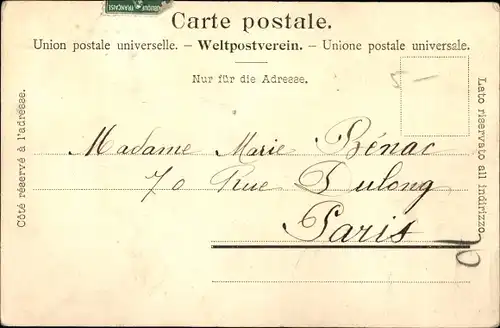 FRANÇAISE
Carte postale.
Union postale universelle. – Weltpostverein. – Unione postale universale.
Nur für die Adresse.
5 –
Côté réservé à l'adresse.
Lato riservato all indirizzo.
Madame Marie Bénac
70 Rue Dulong
Paris